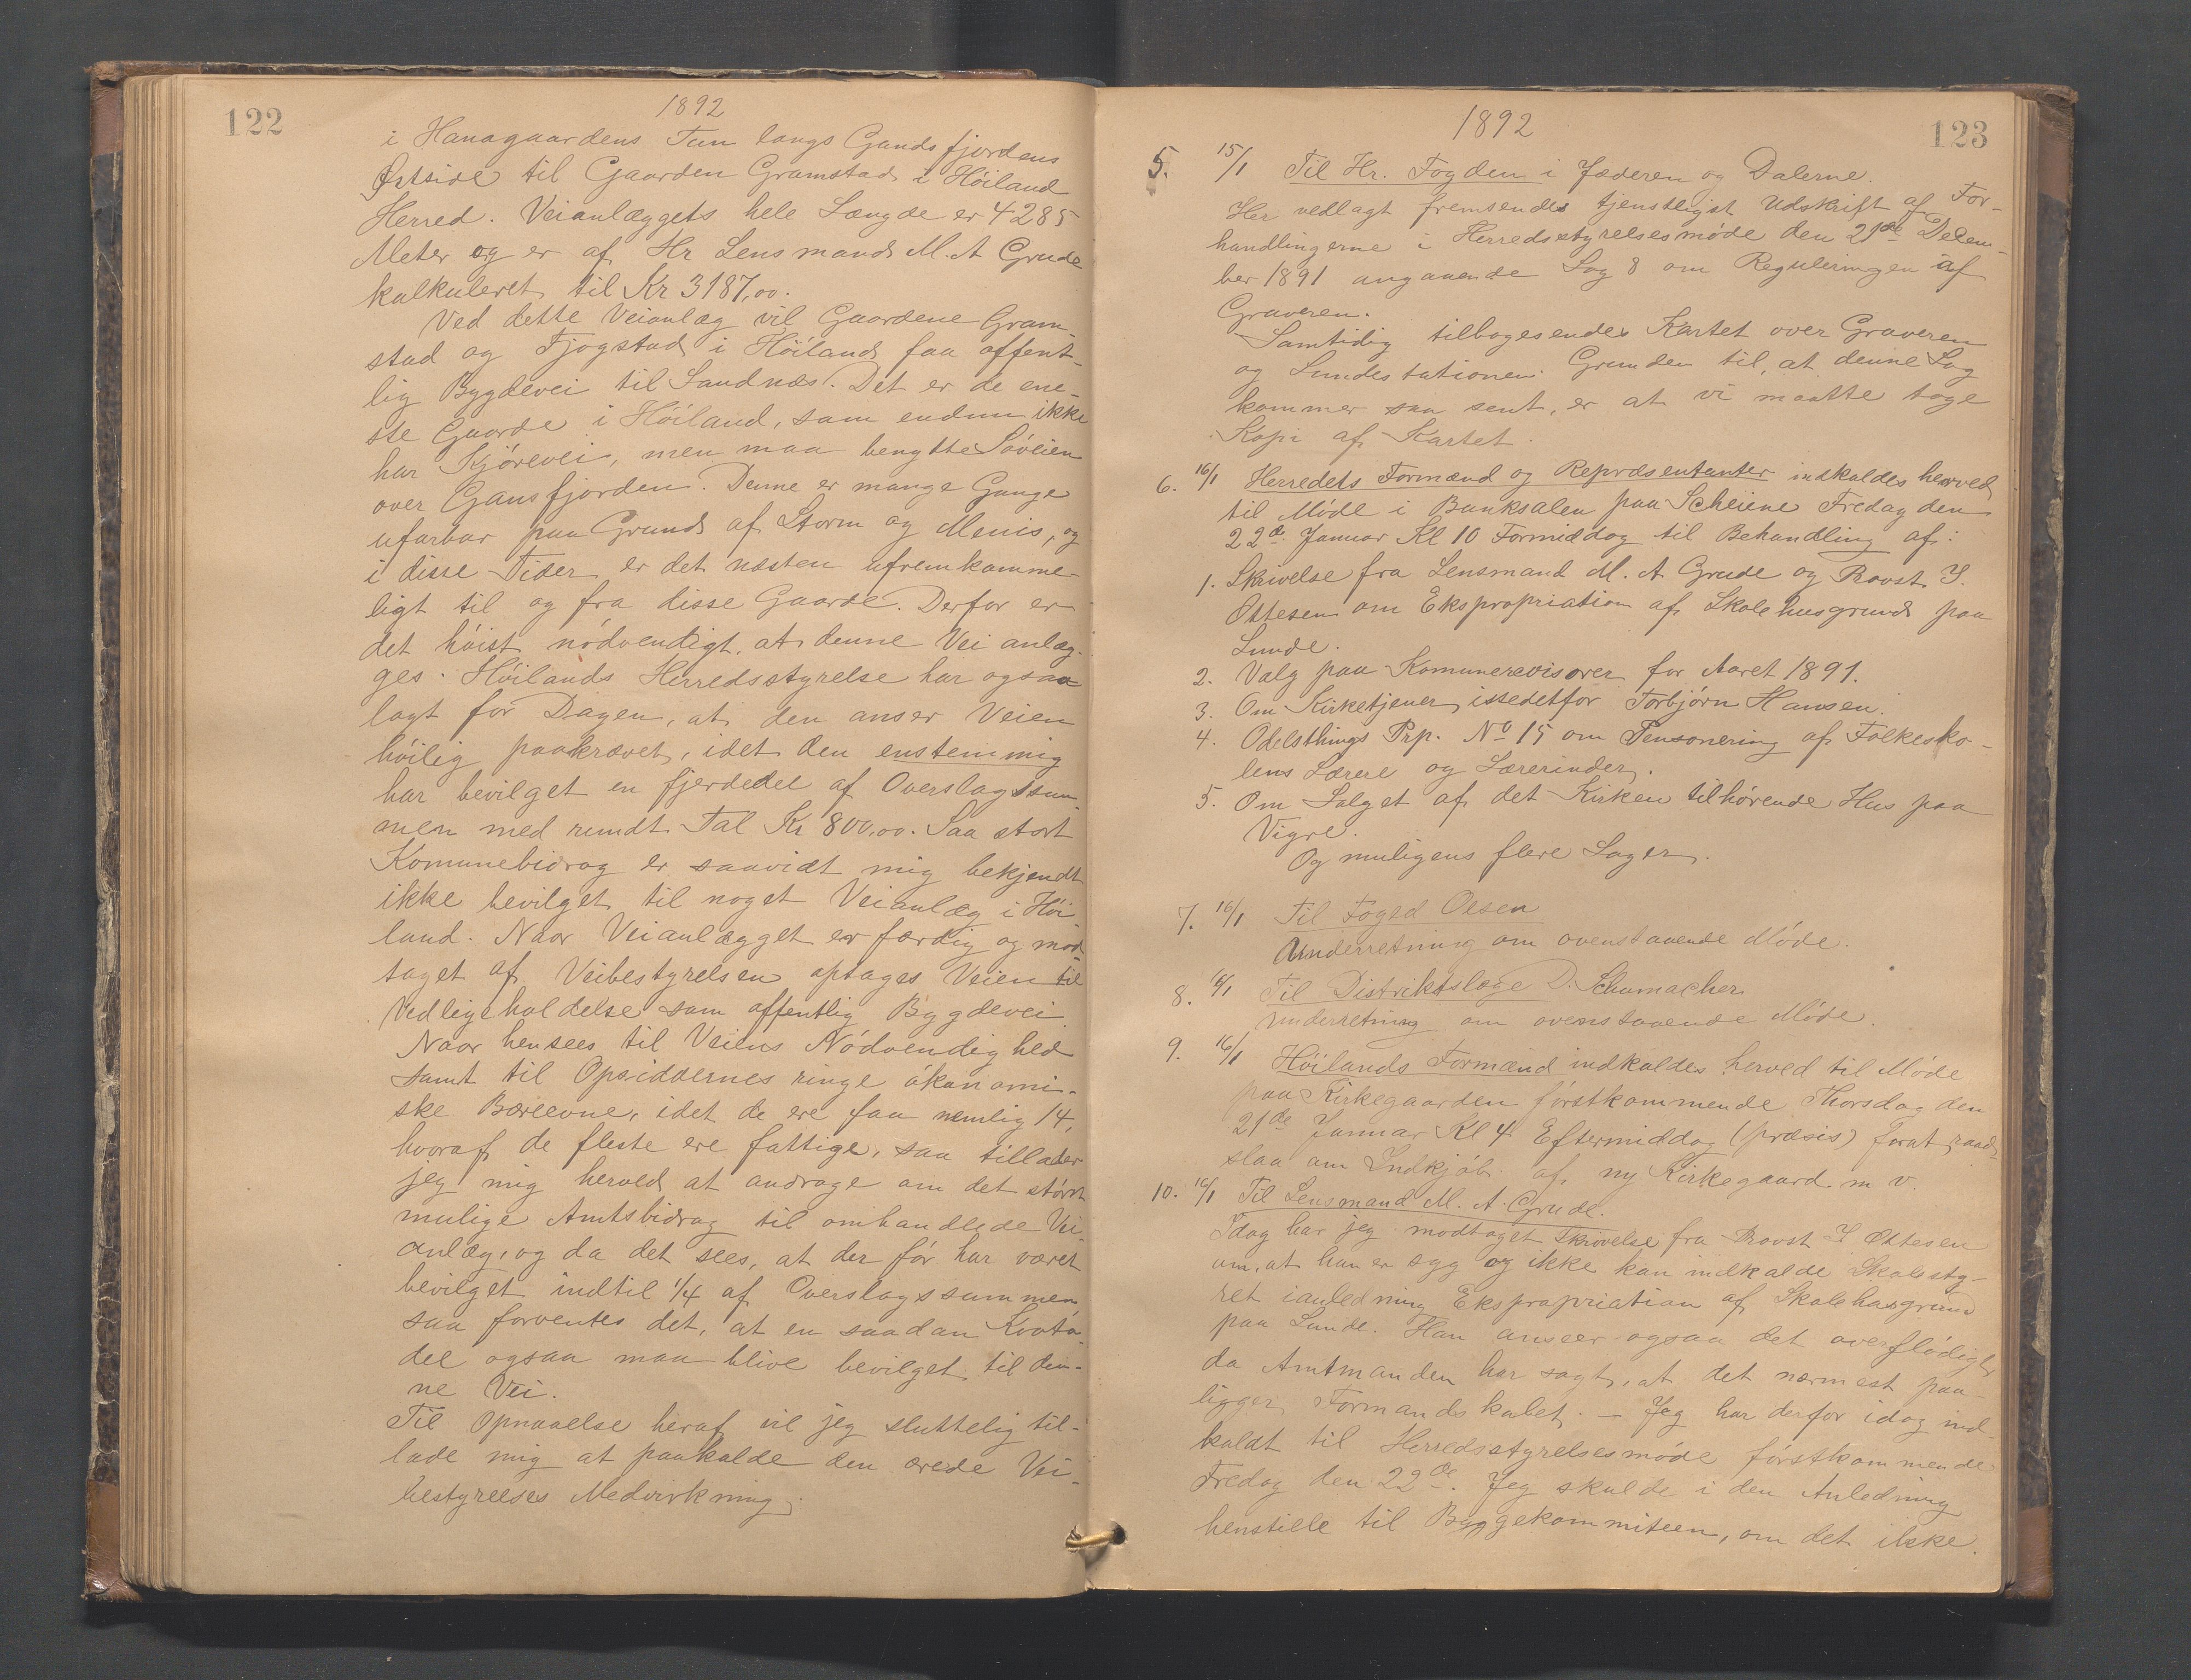 122
1892
i Hanagaardens Tun langs Gandsfjordens
Østside til Gaarden Gramstad i Höiland
Herred. Veianlæggets hele Længde er 4285
Meter og er af Hr Lensmand M. A Grude
kalkuleret til Kr 3187,00.
Ved dette Veianlæg vil Gaardene Gram-
stad og Fjogstad i Höiland faa offent-
lig Bygdevei til Sandnæs. Det er de ene-
ste Gaarde i Höiland, som endnu ikke
har Kjörevei, men maa benytte Söveien
over Gansfjorden. Denne er mange Gange
ufarbar paa Grund af Storm og Menis, og
i disse Tider er det næsten ufremkomme-
ligt til og fra disse Gaarde. Derfor er
det höist nödvendigt, at denne Vei anlæg-
ges. Höilands Herredsstyrelse har ogsaa
lagt for Dagen, at den anser Veien
höilig paakrævet, idet den enstemmig
har bevilget en fjerdedel af Overslagssum-
men med rundt Tal Kr 800,00. Saa stort
Komunebidrag er saavidt mig bekjendt
ikke bevilget til noget Veianlæg i Höi
land. Naar Veianlægget er færdig og mod-
taget af Veibestyrelsen optages Veien til
Vedligeholdelse som offentlig Bygdevei.
Naar hensees til Veiens Nödvendighed
samt til Opsiddernes ringe ökonomi-
ske Bæreevne, idet de ere faa nemlig 14,
hvoraf de fleste ere fattige, saa tillader
jeg mig herved at andrage om det störst
mulige Amtsbidrag til omhandlede Vei-
anlæg, og da det sees, at der för har været
bevilget indtil 1/4 af Overslagssummen,
saa forventes det, at en saadan Kvota-
del ogsaa maa blive bevilget til den-
ne Vei.
Til Opnaaelse heraf vil jeg sluttelig til-
lade mig at paakalde den ærede Vei-
bestyrelses Medvirkning.
1892
123
5. 15/1 Til Hr. Fogden i Jæderen og Dalerne.
Her vedlagt fremsendes tjenstligst Udskrift af For-
handlingerne i Herredsstyrelsesmöde den 21de Decem-
ber 1891 angaaende Sag 8 om Reguleringen af
Graveren.
Samtidig tilbagesendes Kartet over Graveren
og Lundestationen. Grunden til, at denne Sag
kommer saa sent, er at vi maatte tage
Kopi af Kartet.
6. 16/1 Herredets Formænd og Repræsentanter indkaldes herved
til Möde i Banksalen paa Scheiene Fredag den
22de Januar Kl 10 Formiddag til Behandling af:
1. Skrivelse fra Lensmand M. A Grude og Provst I.
Ottesen om Ekspropriation af Skolehusgrund paa
Lunde.
2. Valg paa Komunerevisorer for Aaret 1891.
3. Om Kirketjener istedetfor Torbjörn Hansen.
4. Odelsthings Prp. No 15 om Pensonering af Folkesko-
lens Lærere og Lærerinder.
5. Om Salget af det Kirken tilhörende Hus paa
Vigre.
Og muligens flere Sager.
7. 16/1 Til Foged Olsen
Underretning om ovenstaaende Möde.
8. 16/1 Til Distriktslæge D. Schumacher
Underretning om ovenstaaende Möde.
9. 16/1 Höilands Formænd indkaldes herved til Möde
paa Kirkegaarden förstkommende Thorsdag den
21de Januar Kl 4 Eftermiddag (præsis) forat raad-
slaa om Indkjöb af ny Kirkegaard m v.
10. 16/1 Til Lensmand M. A. Grude.
Idag har jeg modtaget Skrivelse fra Provst I Ottesen
om, at han er syg og ikke kan indkalde Skolesty-
ret ianledning Ekspropriation af Skolehusgrund
paa Lunde. Han anseer ogsaa det overflödigt,
da Amtmanden har sagt, at det nærmest paa-
ligger Formandskabet. — Jeg har derfor idag ind-
kaldt til Herredsstyrelsesmöde förstkommende
Fredag den 22de. Jeg skulde i den Anledning
henstille til Byggekommiteen, om det ikke.